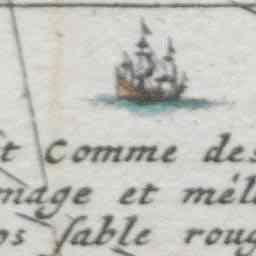 t Comme des
mage et mêl
os ſable roug